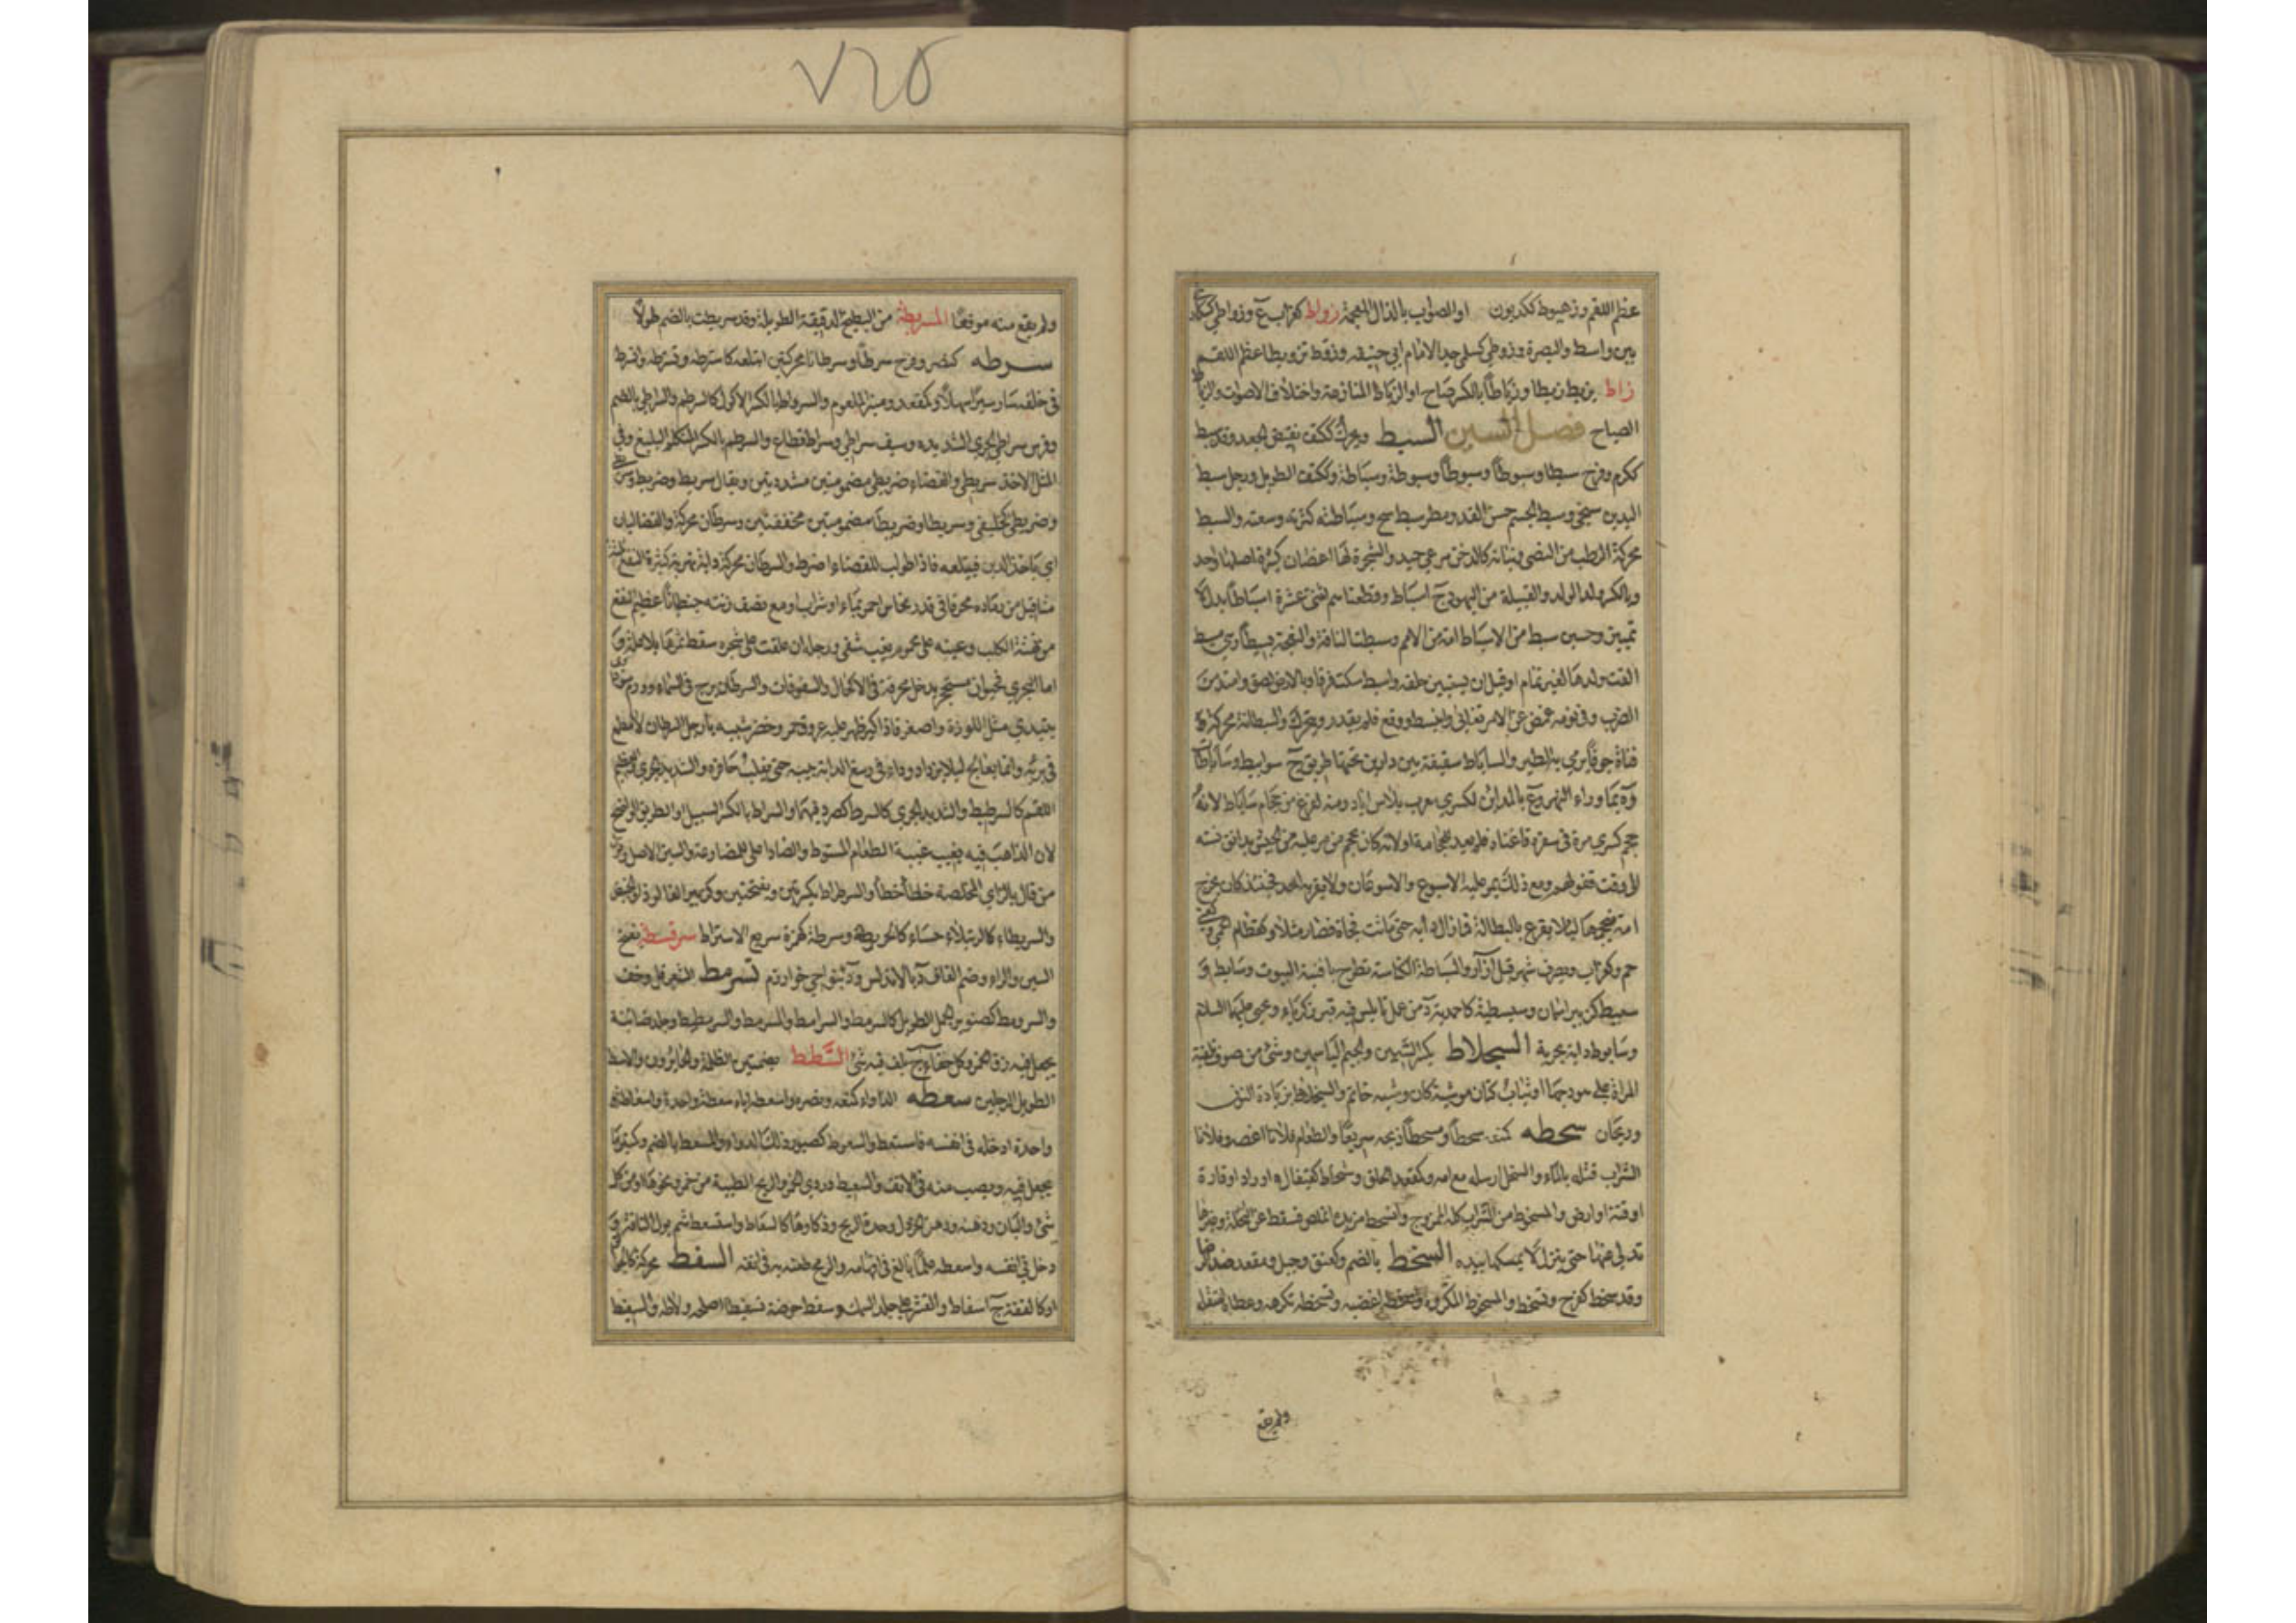 عظم اللقم وزهيوط ككديون او الصواب بالذال المعجمة زواط كغراب ع وزواطى
بين واسط والبصرة وزوطى كسلمى جد الامام ابي حنيفه وزوّط تزويطا عظم اللقم
زاط يزيط زيطا وزياطا بالكسر صاح او الزياط المنازعة واختلاف الاصوات والزياط
الصياح فصل السين السبط ويحرك وككتف نقيض الجعد وقد سبط
ككرم وفرح سبطا وسبوطا وسبوطة وسباطة وككتف الطويل ورجل سبط
اليدين سخي وسبط الجسم حسن القد ومطر سبط سح وسباطته كثرته وسعته والسبط
محركة الرطب من النصي ونباته كالدخن مرعى جيد والشجرة لها اغصان كثيرة اصلها واحد
وبالكسر ولد الولد والقبيلة من اليهود ج اسباط وقطعناهم اثنتي عشرة اسباطا بدل لا
تمييز وحسين سبط من الاسباط امة من الامم وسبطت الناقة والنعجة تسبيطا وهي مسبط
القت ولدها لغير تمام او قبل ان يستبين خلقه واسبط سكت فرقا وبالارض لصق وامتد من
الضرب وفي نومه غمض وعن الامر تغابى وانبسط ووقع فلم يقدر ويتحرك والسبطانة محركة
قناة جوفاء يرمى بها الطير والساباط سقيفة بين دارين تحتها طريق ج سوابيط وساباطات
وة بما وراء النهر وع بالمدائن لكسرى معرب بلاس اباد ومنه افرغ من حجام ساباط لانه
حجم كسرى مرة في سفره فاغناه فلم يعد للحجامة او لانه كان يحجم من مر عليه من الجيش بدانق نسئة
الى وقت قفولهم ومع ذلك يمر عليه الاسبوع والاسبوعان ولا يقربه احد فحينئذ كان يخرج
امه فيحجمها لئلا يقرع بالبطالة فما زال دابه حتى ماتت فجاة فصار مثلا وكقطام الحمى
حم وكغراب ويصرف شهر قبل اذار والسباطة الكناسة تطرح بافنية البيوت وسابط و
سبيط كزبير اسمان وسبسطية كاحمدية د من عمل نابلس فيه قبر زكرياء ويحيى عليهما السلام
وسابوط دابة بحرية السجلاط بكسر السين والجيم الياسمين وشيء من صوف تلقيه
المراة على هودجها او ثياب كتان موشية كان وشيه خاتم والسنجلاط بزيادة النون
وريحان سحطه كمنعه سحطا ومسحطا ذبحه سريعا والطعام فلانا اغصه وفلانا
الشراب قتله بالماء والسخل ارسله مع امه وكمقعد الحلق
او قنة او ارض والمسحوط من الشراب كله الممزوج وانسحط من يده املص فسقط عن النخلة وغيرها
تدلى عنها حتى ينزل لا يمسكها بيده السخط بالضم وكعنق وجبل ومقعد ضد الرضا
وقد سخط كفرح وتسخط والمسخوط المكروه واسخطه اغضبه وتسخطه تكرهه وعطاءه استقله
ولم يقع
ولم يقع منه موقعا المسربطة من البطيخ الدقيقة الطويلة وقد سربطت بالضم طولا
سرطه كنصر وفرح سرطا وسرطانا محركتين ابتلعه كاسترطه وتسرطه وانسرط
في حلقه سار سيرا سهلا وكمقعد ومنبر البلعوم والسرواط بالكسر الاكول كالسرطم والسراطي بالضم
وفرس سراطي الجري شديده وسيف سراطي وسراط قطاع والسرطم بالكسر المتكلم البليغ وفي
المثل الاخذ سريطى والقضاء ضريطى مضمومتين مشددتين ويقال سريط وضريط
وضريطى كخليفى وسريطا وضريطا مضمومتين مخففتين وسرطان محركة والقضاء ليان
اي ياخذ الدين فيبتلعه فاذا طولب للقضاء اضرط والسرطان محركة دابة نهرية كثيرة النفع
مثاقيل من رماده محرقا في قدر نحاس احمر بماء او شراب او مع نصف زنته جنطيانا عظيم النفع
من نهشة الكلب وعينه على محموم بغب شفي ورجله ان علقت على شجرة سقط ثمرها بلا علة و
اما البحري فحيوان مستحجر يدخل محرقه في الاكحال والسنونات والسرطان برج في السماء وورم سوداوي
يبتدي مثل اللوزة واصغر فاذا كبر ظهر عليه عروق حمر وخضر شبيه بارجل السرطان لا مطمع
في برئه وانما يعالج لئلا يزداد وداء في رسغ الدابة ييبسه حتى يقلب حافره والشديد الجري والعظيم
اللقم كالسرطيط والشديد الجري كالسرط كصرد فيهما والسراط بالكسر السبيل الواضح
لان الذاهب فيه يغيب غيبة الطعام المسترط والصاد اعلى للمضارعة والسين الاصل
من قال بالزاي المخلصة خطا خطأ والسرطراط بكسرتين وبفتحتين وكزبير الفالوذ او الخبيص
والسريطاء كالرتيلاء حساء كالخريرة وسرطة كهمزة سريع الاستراط سرقسطة بفتح
السين والراء وضم القاف د بالاندلس ود بنواحي خوارزم تسرمط الشعر قل وخف
والسرومط كصنوبر الجمل الطويل كالسرمط والسرامط والمسرمط والسرمطيط وجلد ضائنة
يجعل فيه زق الخمر وكل خفاء يلف فيه شيء السطط بضمتين الظلمة والجائرون والاسط
الطويل الرجلين سعطه الدواء كمنعه ونصره واسعطه اياه سعطة واحدة واسعاطة
واحدة ادخله في انفه فاستعط والسعوط كصبور ذلك الدواء والمسعط بالضم وكمنبر ما
يجعل فيه ويصب منه في الانف والسعيط دردي الخمر والريح الطيبة من خمر ونحوها او من كل
شيء والبان ودهنه ودهن الخردل وحدة الريح وذكاؤها كالسعاط واستعط شم بول الناقة و
دخل في انفه واسعطه علما بالغ في افهامه والرمح طعنه به في انفه السفط محركة كالجوالق
او كالقفة ج اسفاط والقشر على جلد السمك وسفط حوضه تسفيطا اصلحه ولاطه والسفيط